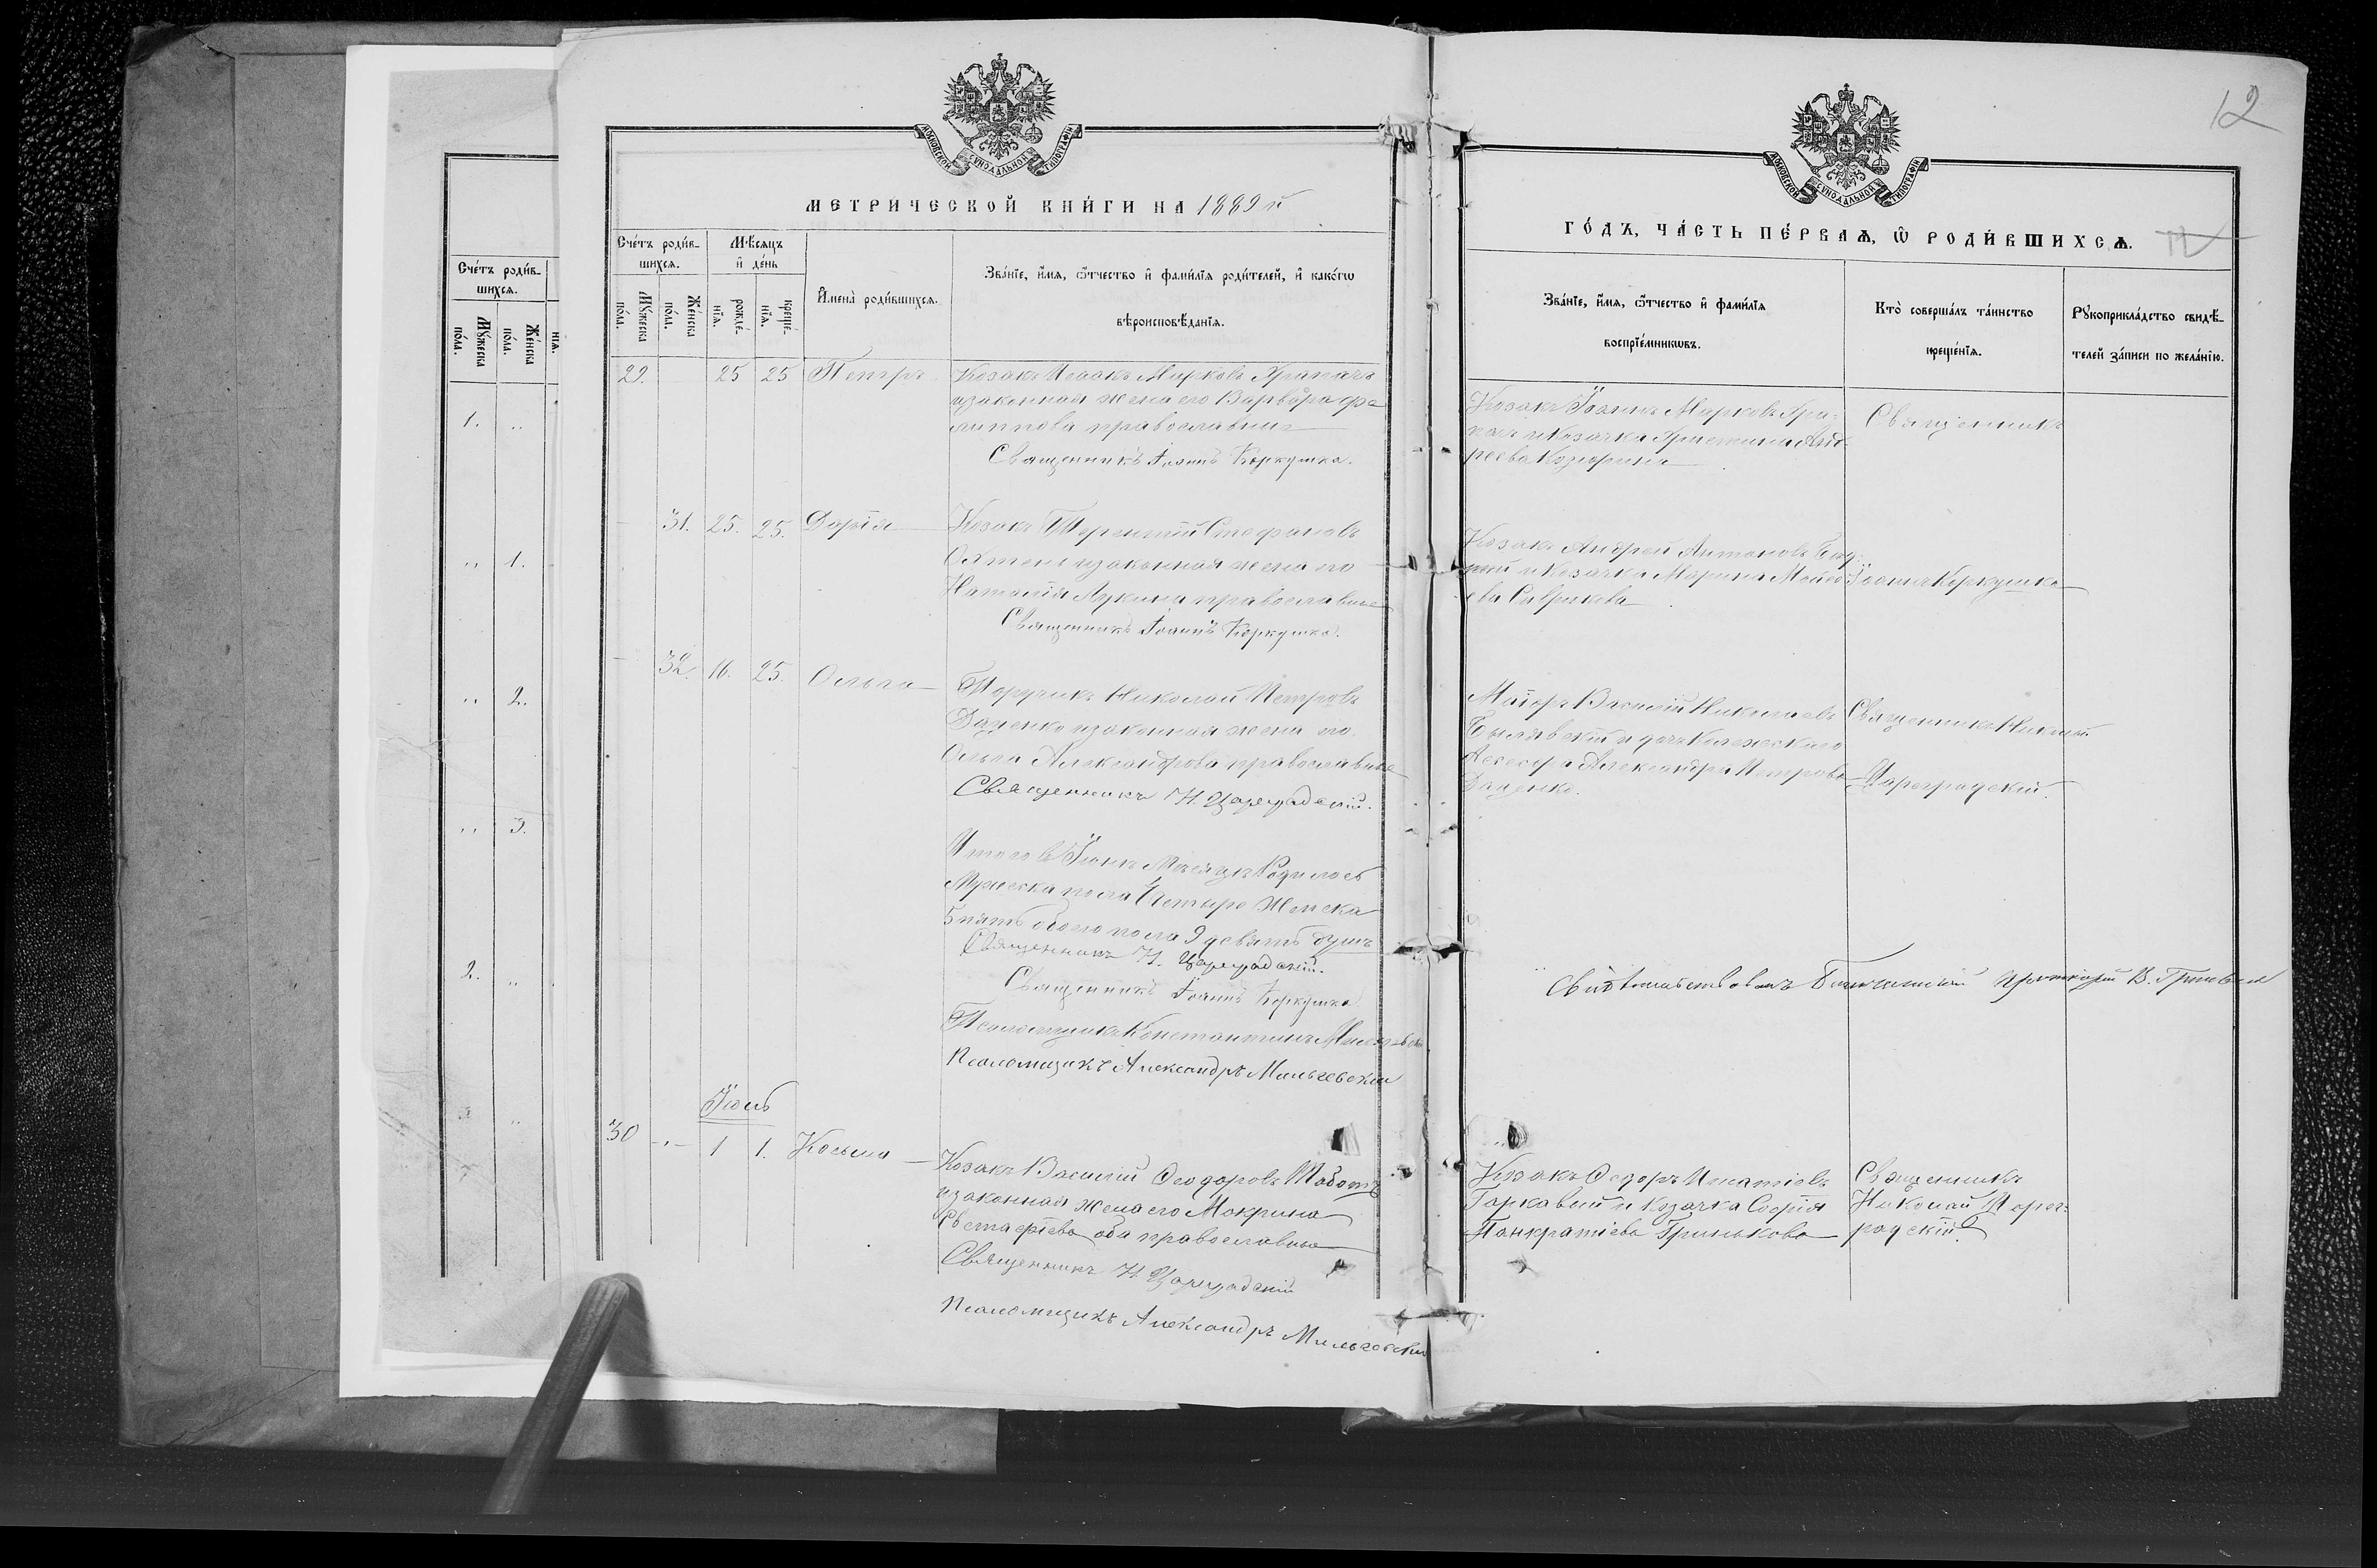 12
МОСКОВСКОЙ СѴНОДАЛЬНОЙ ТИПОГРАФІИ
МЕТРИЧЕСКОЙ КНИ́ГИ НА 1889 й
Сче́тъ роди́в-
шихсѧ.
Мꙋ́жеска
по́ла.
Же́нска
по́ла.
Мѣ́сѧцъ
и҆ де́нь
рожде́-
нїѧ.
креще́-
нїѧ.
И҆мена̀ роди́вшихсѧ.
Зва́нїе, и҆́мѧ, ѻ҆́тчество и҆ фами́лїѧ роди́телей, и҆ како́гѡ
вѣроисповѣ́данїѧ.
29. 25 25 Петръ Козакъ Исаакъ Марковъ Храпачъ
и законная жена его Варвара Фи
липпова православни
Священникъ Іоаннъ Коркушко.
31. 25. 25. Дарія Козакъ Терентій Стефановъ
и законная жена его
Наталія Лукина православные
Священникъ Іоаннъ Коркушко.
32. 16. 25. Ольга Поручикъ Николай Петровъ
Даценко и законная жена его
Ольга Александрова православные
Священникъ Н. Цареградскій.
Итого въ Іюнѣ Месяцѣ Родилось
Мужеска пола Четыре Женска
5 пять обоего пола 9 девять душъ
Священникъ Н. Цареградскій.
Священникъ Іоаннъ Коркушко
Псаломщикъ Константинъ
Псаломщикъ Александръ Мильчевскій
Іюль
30 1 1. Косьма Козакъ Василій Феодоровъ
и законная жена его Мокрина
Евстафіева оба православные
Священникъ Н. Цареградскій
Псаломщикъ Александръ Мильчевскій
МОСКОВСКОЙ СѴНОДАЛЬНОЙ ТИПОГРАФІИ
ГО́ДЪ, ЧА́СТЬ ПЕ́РВАѦ, Ѡ҆ РОДИ́ВШИХСѦ.
12
Зва́нїе, и҆́мѧ, ѻ҆́тчество и҆ фами́лїѧ
воспрїе́мникѡвъ.
Кто̀ соверша́лъ та́инство
креще́нїѧ.
Рꙋкоприкла́дство свидѣ́-
телей за́писи по жела́нїю.
Козакъ Іоаннъ Марковъ Хра-
пачъ и Козачка Христина Анд-
реева
Священникъ
Козакъ Андрей Антоновъ
и Козачка Марина Моисе
ева
Іоаннъ Коркушко
Маіоръ Василій Николаевъ
Былявскій и дочь Колежскаго
Асесора Александра Петрова
Даценко.
Священникъ Николай
Цареградскій.
Свидѣтельствовалъ Благочинный Протоіерей В.
Козакъ Федоръ Игнатіевъ
Гаркавый и Козачка Софія
Панкратіева Гринькова
Священникъ
Николай Царег-
радскій
Сче́тъ роди́в-
шихсѧ.
Мꙋ́жеска
по́ла.
Же́нска
по́ла.
нїѧ.
1. „
„ 1.
„ 2.
„ 3.
2. „
3 „